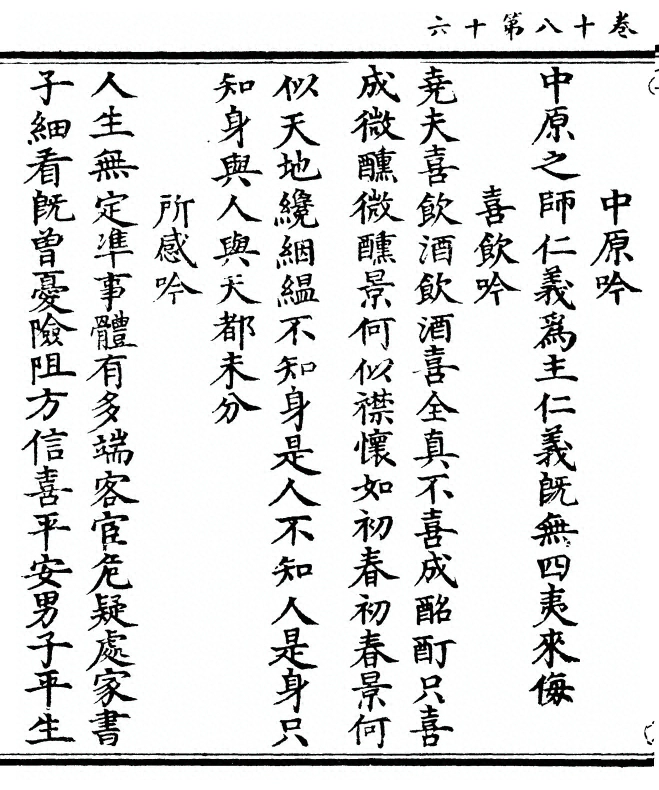 卷十八第十六
中原吟
中原之師仁義爲主仁義旣無四夷來侮
喜飲吟
堯夫喜飲酒飲酒喜全真不喜成酩酊只喜
成微醺微醺景何似襟懷如初春初春景何
似天地纔絪緼不知身是人不知人是身只
知身與人與天都未分
所感吟
人生無定準事體有多端客宦危疑處家書
子細看旣曾憂險阻方信喜平安男子平生